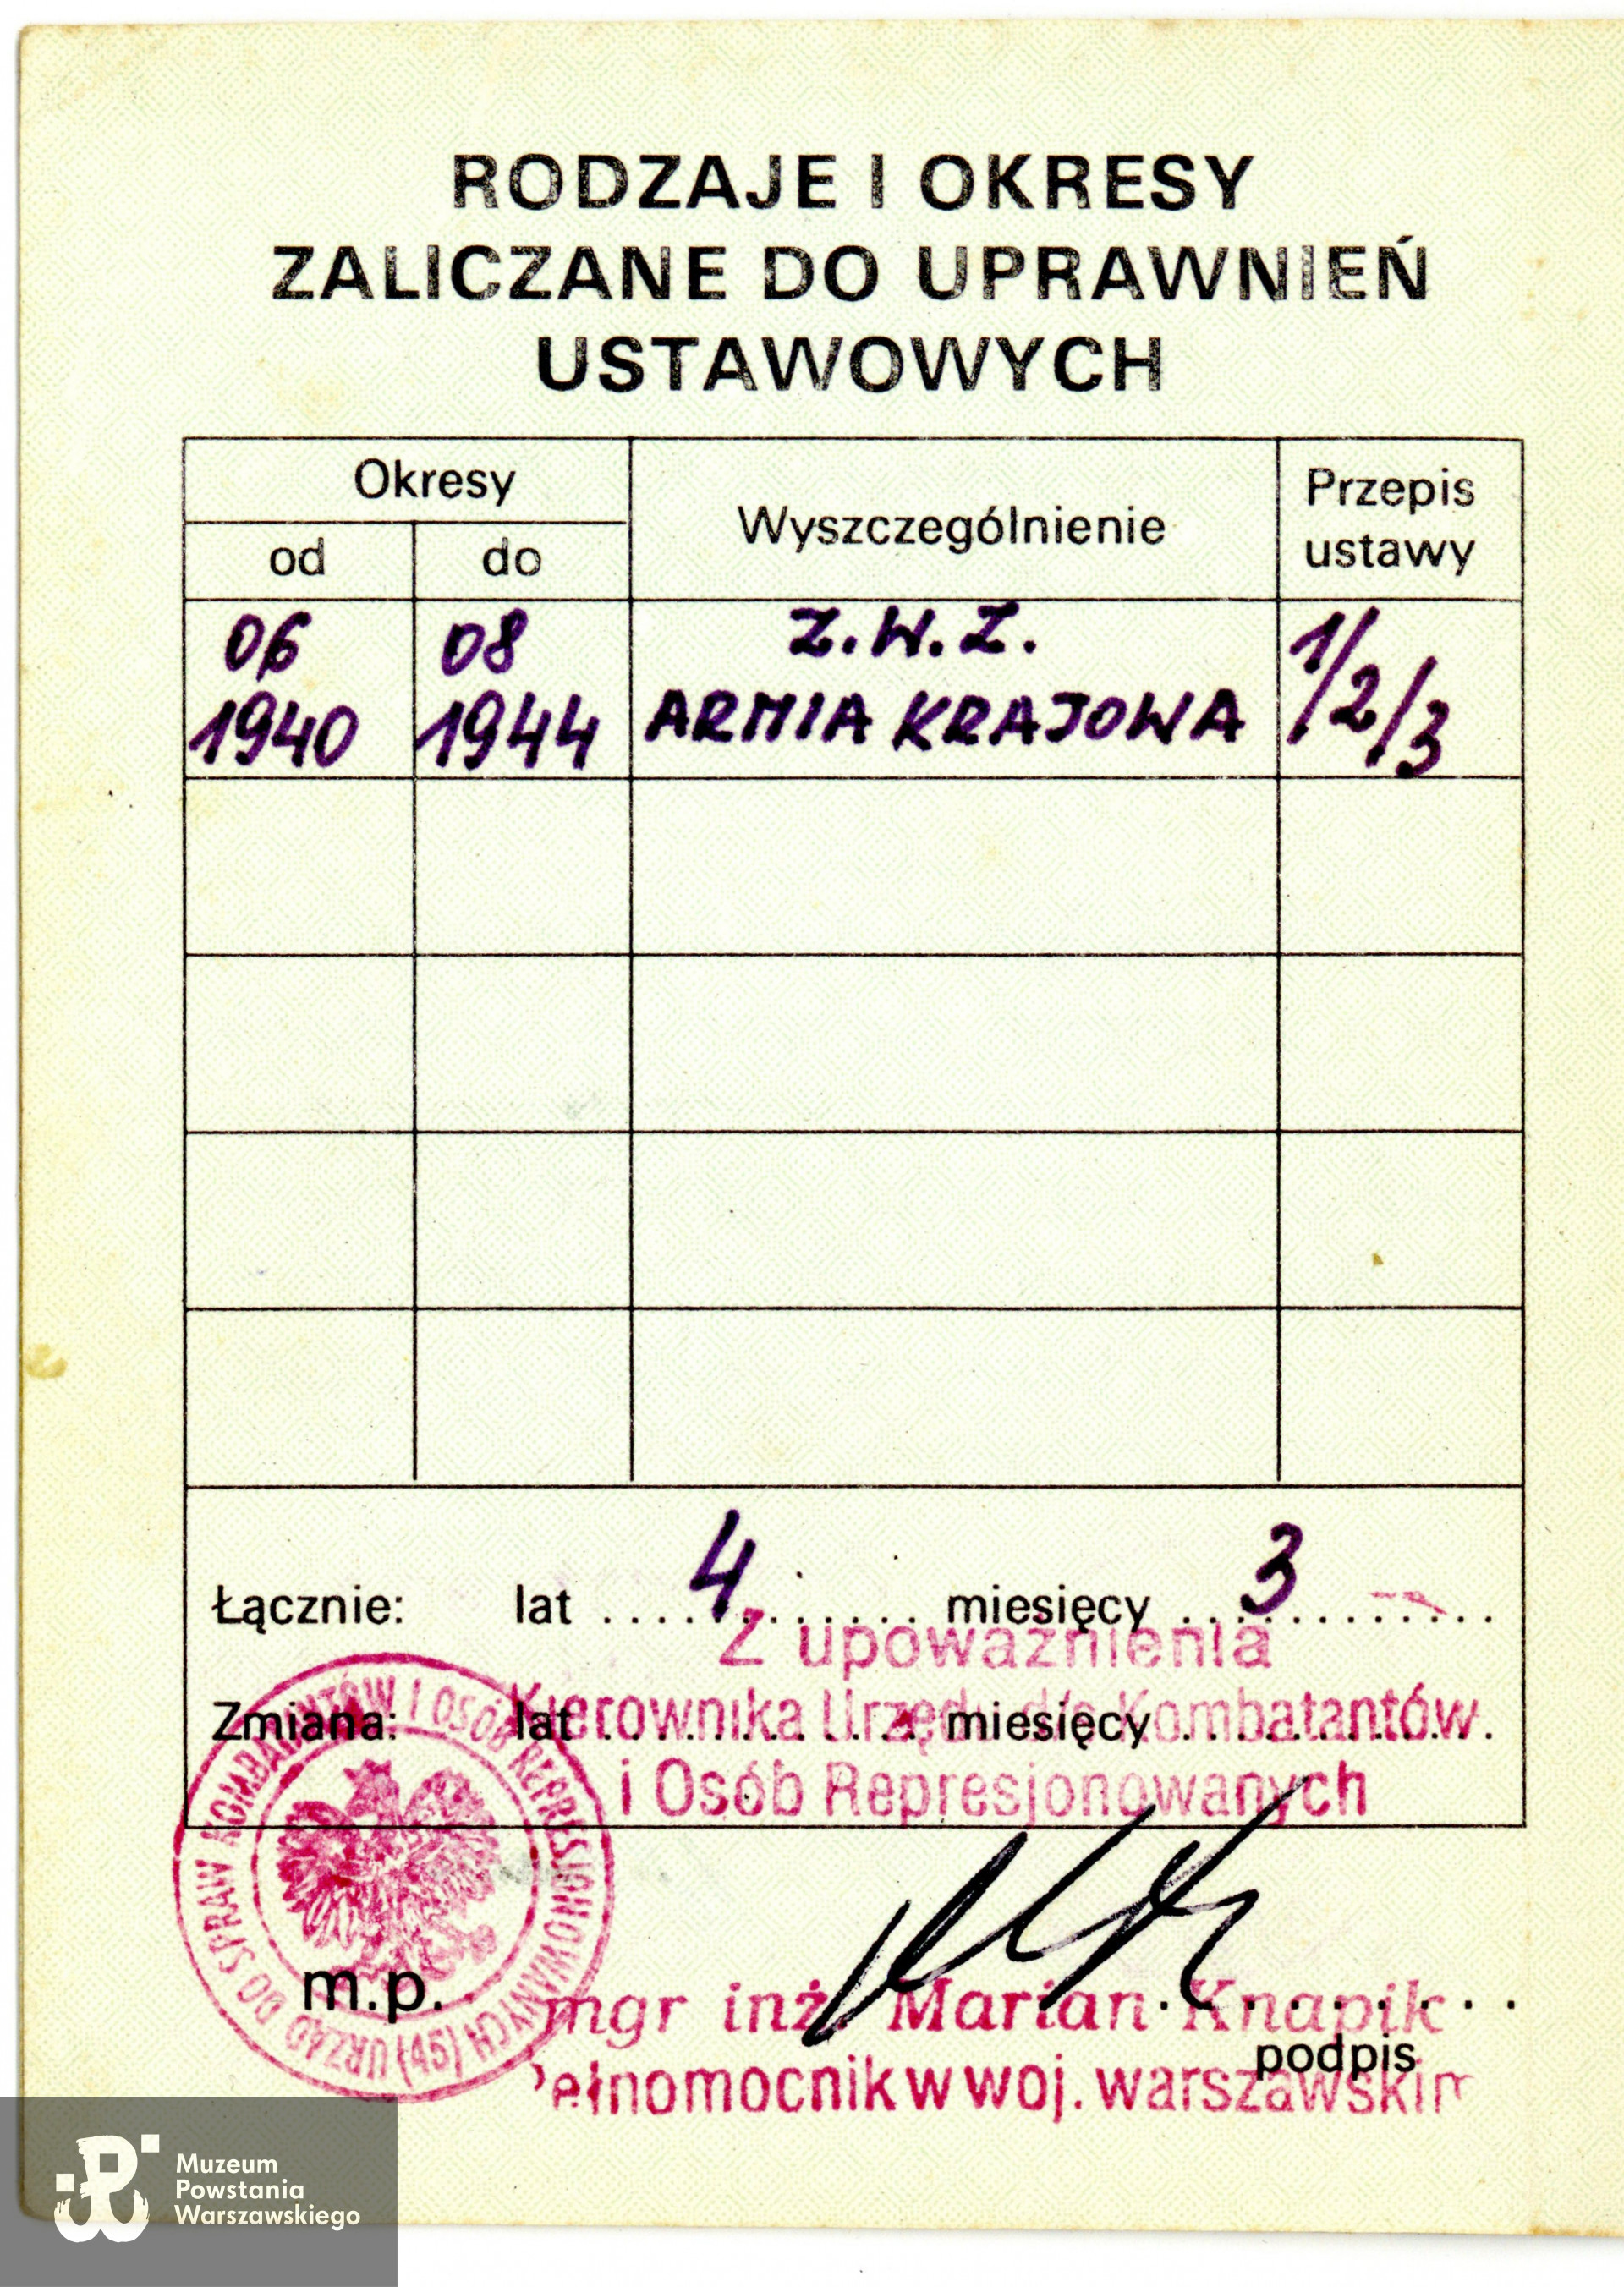 RODZAJE I OKRESY
ZALICZANE DO UPRAWNIEŃ
USTAWOWYCH
Okresy
od do
Wyszczególnienie
Przepis
ustawy
06 08 Z.W.Z.
1940 1944 ARMIA KRAJOWA 1/2/3
Łącznie: lat 4 miesięcy 3
Z upoważnienia
Zmiana: lat miesięcy
Kierownika Urzędu d/s Kombatantów
i Osób Represjonowanych
URZĄD DO SPRAW KOMBATANTÓW I OSÓB REPRESJONOWANYCH (45)
m.p.
mgr inż. Marian Knapik
podpis
Pełnomocnik w woj. warszawskim
Muzeum
Powstania
Warszawskiego